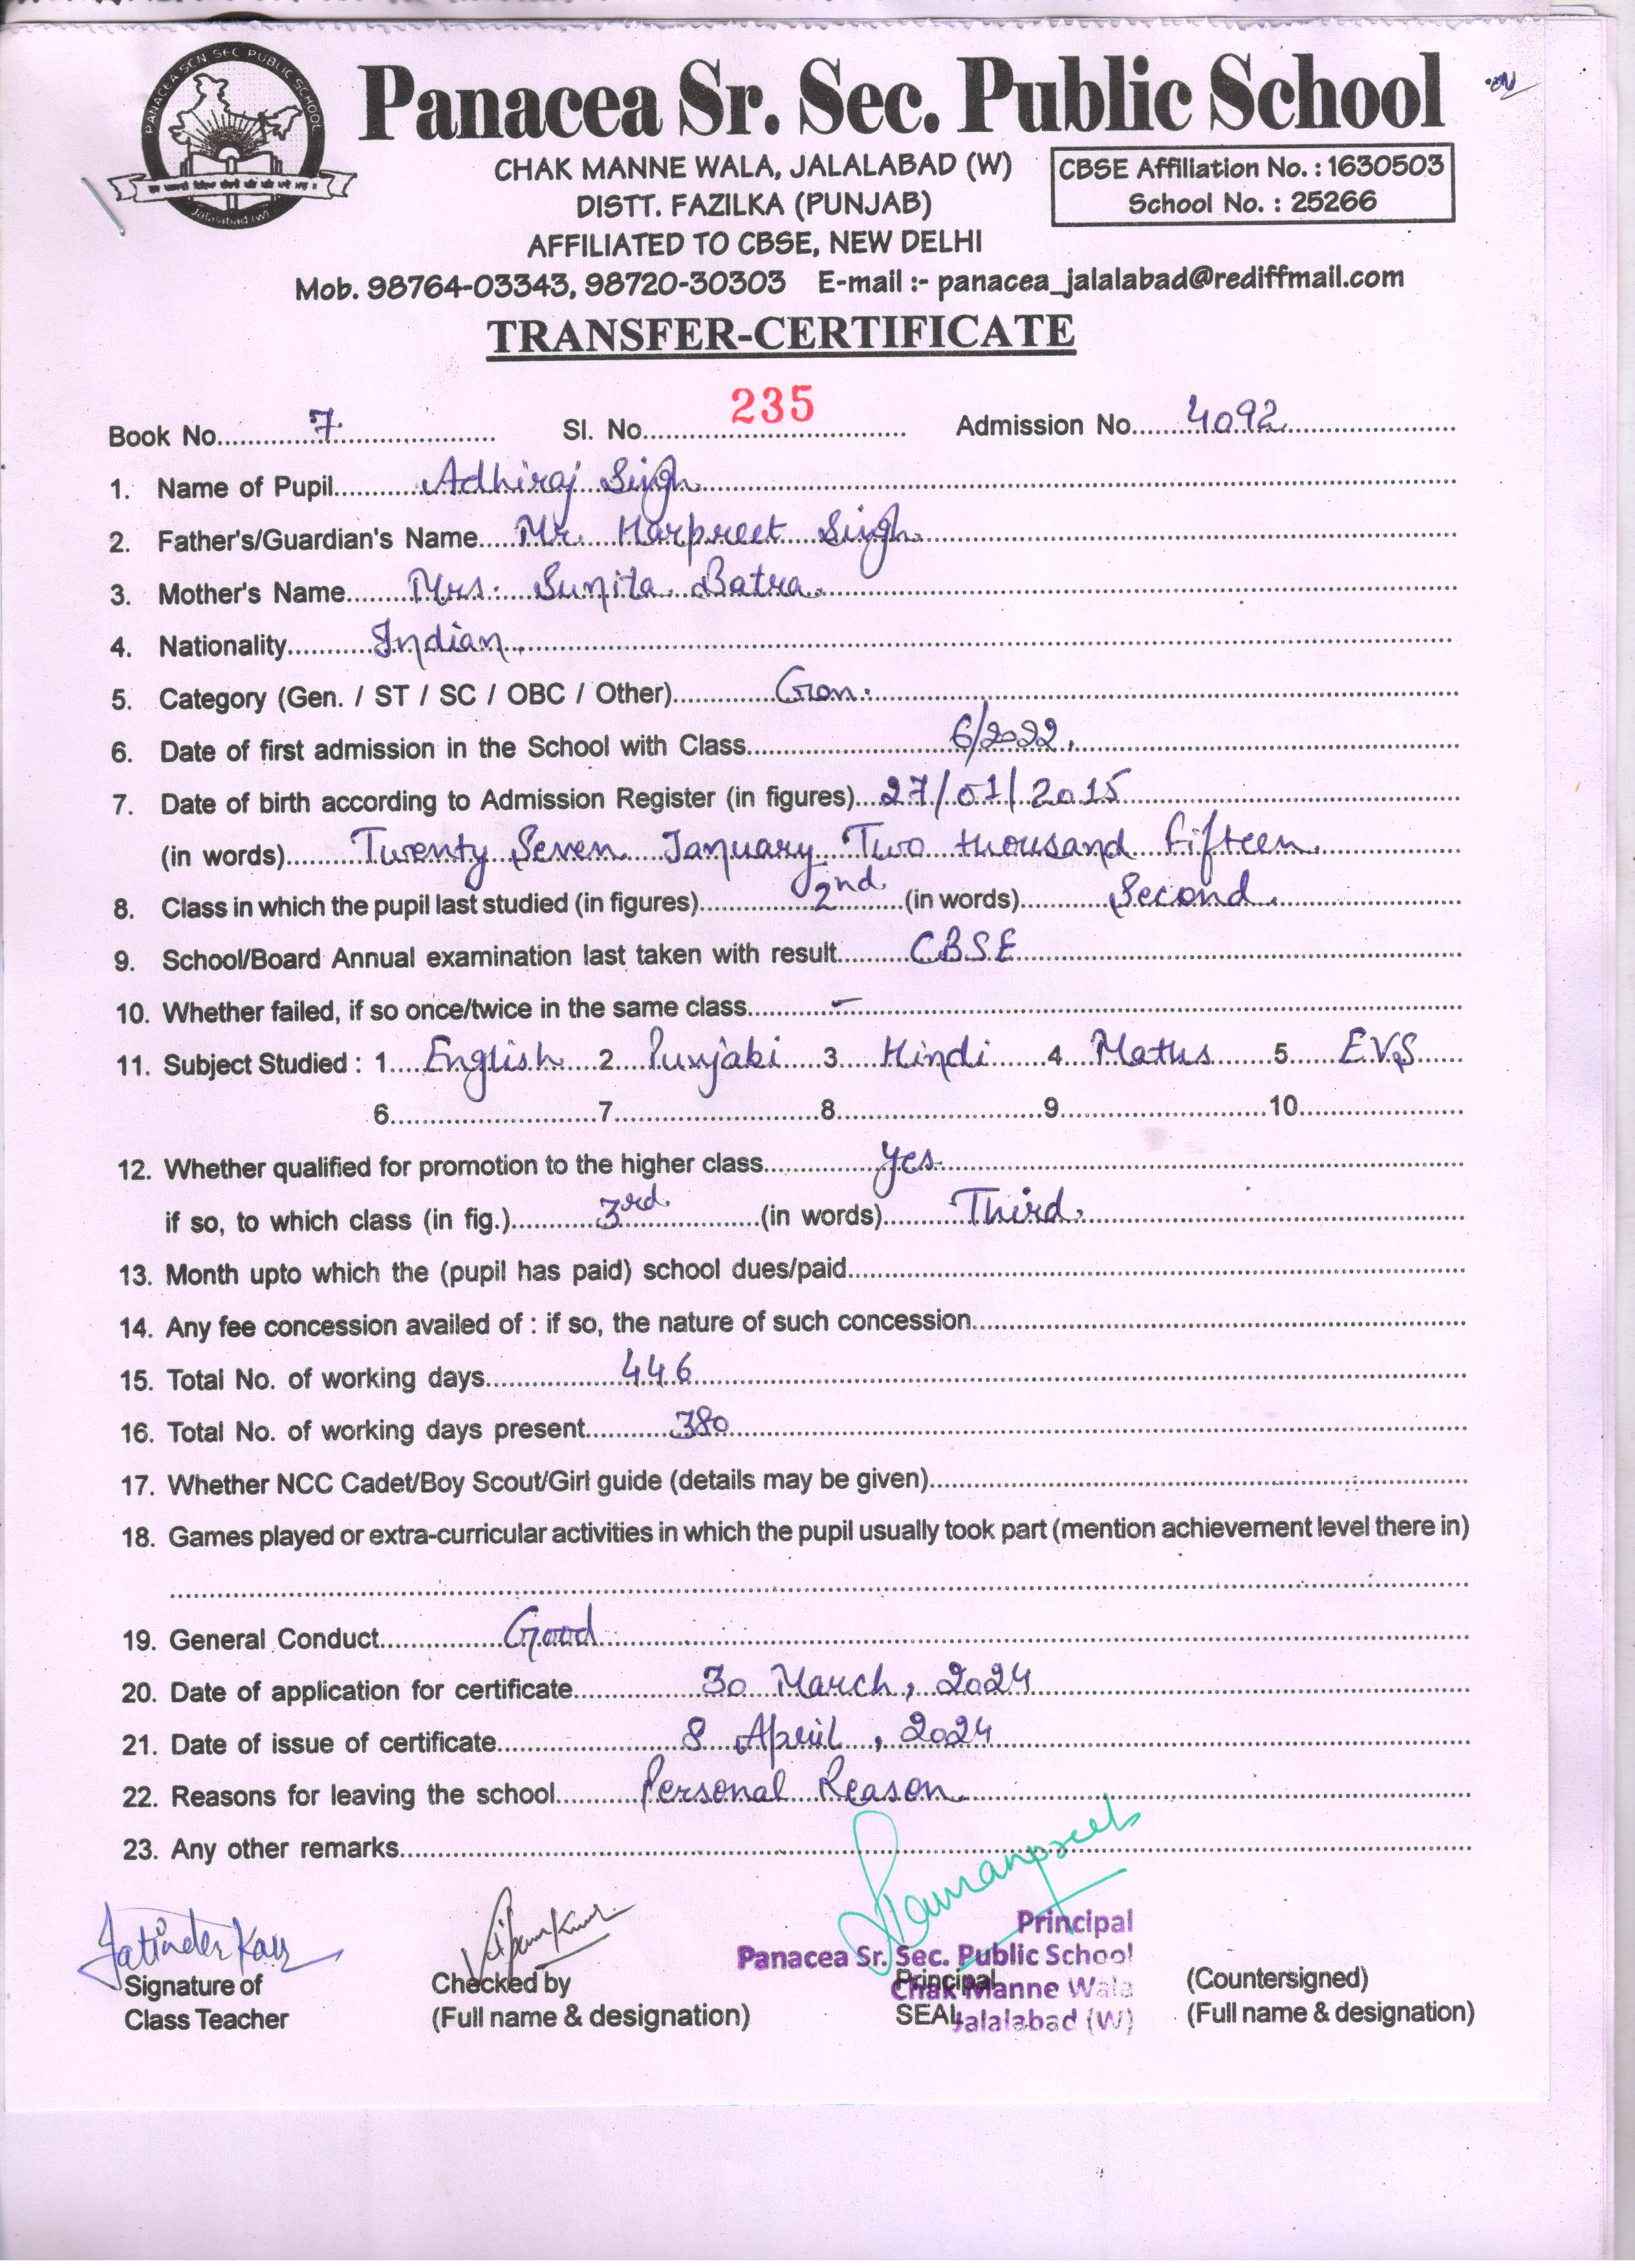 PANACEA SCN SEC PUBLIC SCHOOL
Jalalabad (W)
Panacea Sr. Sec. Public School
CHAK MANNE WALA, JALALABAD (W)
DISTT. FAZILKA (PUNJAB)
AFFILIATED TO CBSE, NEW DELHI
CBSE Affiliation No. : 1630503
School No. : 25266
Mob. 98764-03343, 98720-30303 E-mail :- panacea_jalalabad@rediffmail.com
TRANSFER-CERTIFICATE
Book No. 7 Sl. No. 235 Admission No. 4092
1. Name of Pupil Adhiraj Singh
2. Father's/Guardian's Name Mr. Harpreet Singh
3. Mother's Name Mrs. Sunita Batra
4. Nationality Indian
5. Category (Gen. / ST / SC / OBC / Other) Gen.
6. Date of first admission in the School with Class 6/2022
7. Date of birth according to Admission Register (in figures) 27/01/2015
(in words) Twenty Seven January Two thousand fifteen
8. Class in which the pupil last studied (in figures) 2nd (in words) Second
9. School/Board Annual examination last taken with result CBSE
10. Whether failed, if so once/twice in the same class -
11. Subject Studied : 1. English 2. Punjabi 3. Hindi 4. Maths 5. E.V.S
6. 7. 8. 9. 10.
12. Whether qualified for promotion to the higher class yes
if so, to which class (in fig.) 3rd (in words) Third
13. Month upto which the (pupil has paid) school dues/paid
14. Any fee concession availed of : if so, the nature of such concession
15. Total No. of working days 446
16. Total No. of working days present 380
17. Whether NCC Cadet/Boy Scout/Girl guide (details may be given)
18. Games played or extra-curricular activities in which the pupil usually took part (mention achievement level there in)
19. General Conduct Good
20. Date of application for certificate 30 March, 2024
21. Date of issue of certificate 8 April, 2024
22. Reasons for leaving the school Personal Reason
23. Any other remarks
Jatinder Kaur
Principal
Panacea Sr. Sec. Public School
Chak Manne Wala
Jalalabad (W)
Signature of Class Teacher
Checked by
(Full name & designation)
Principal
SEAL
(Countersigned)
(Full name & designation)